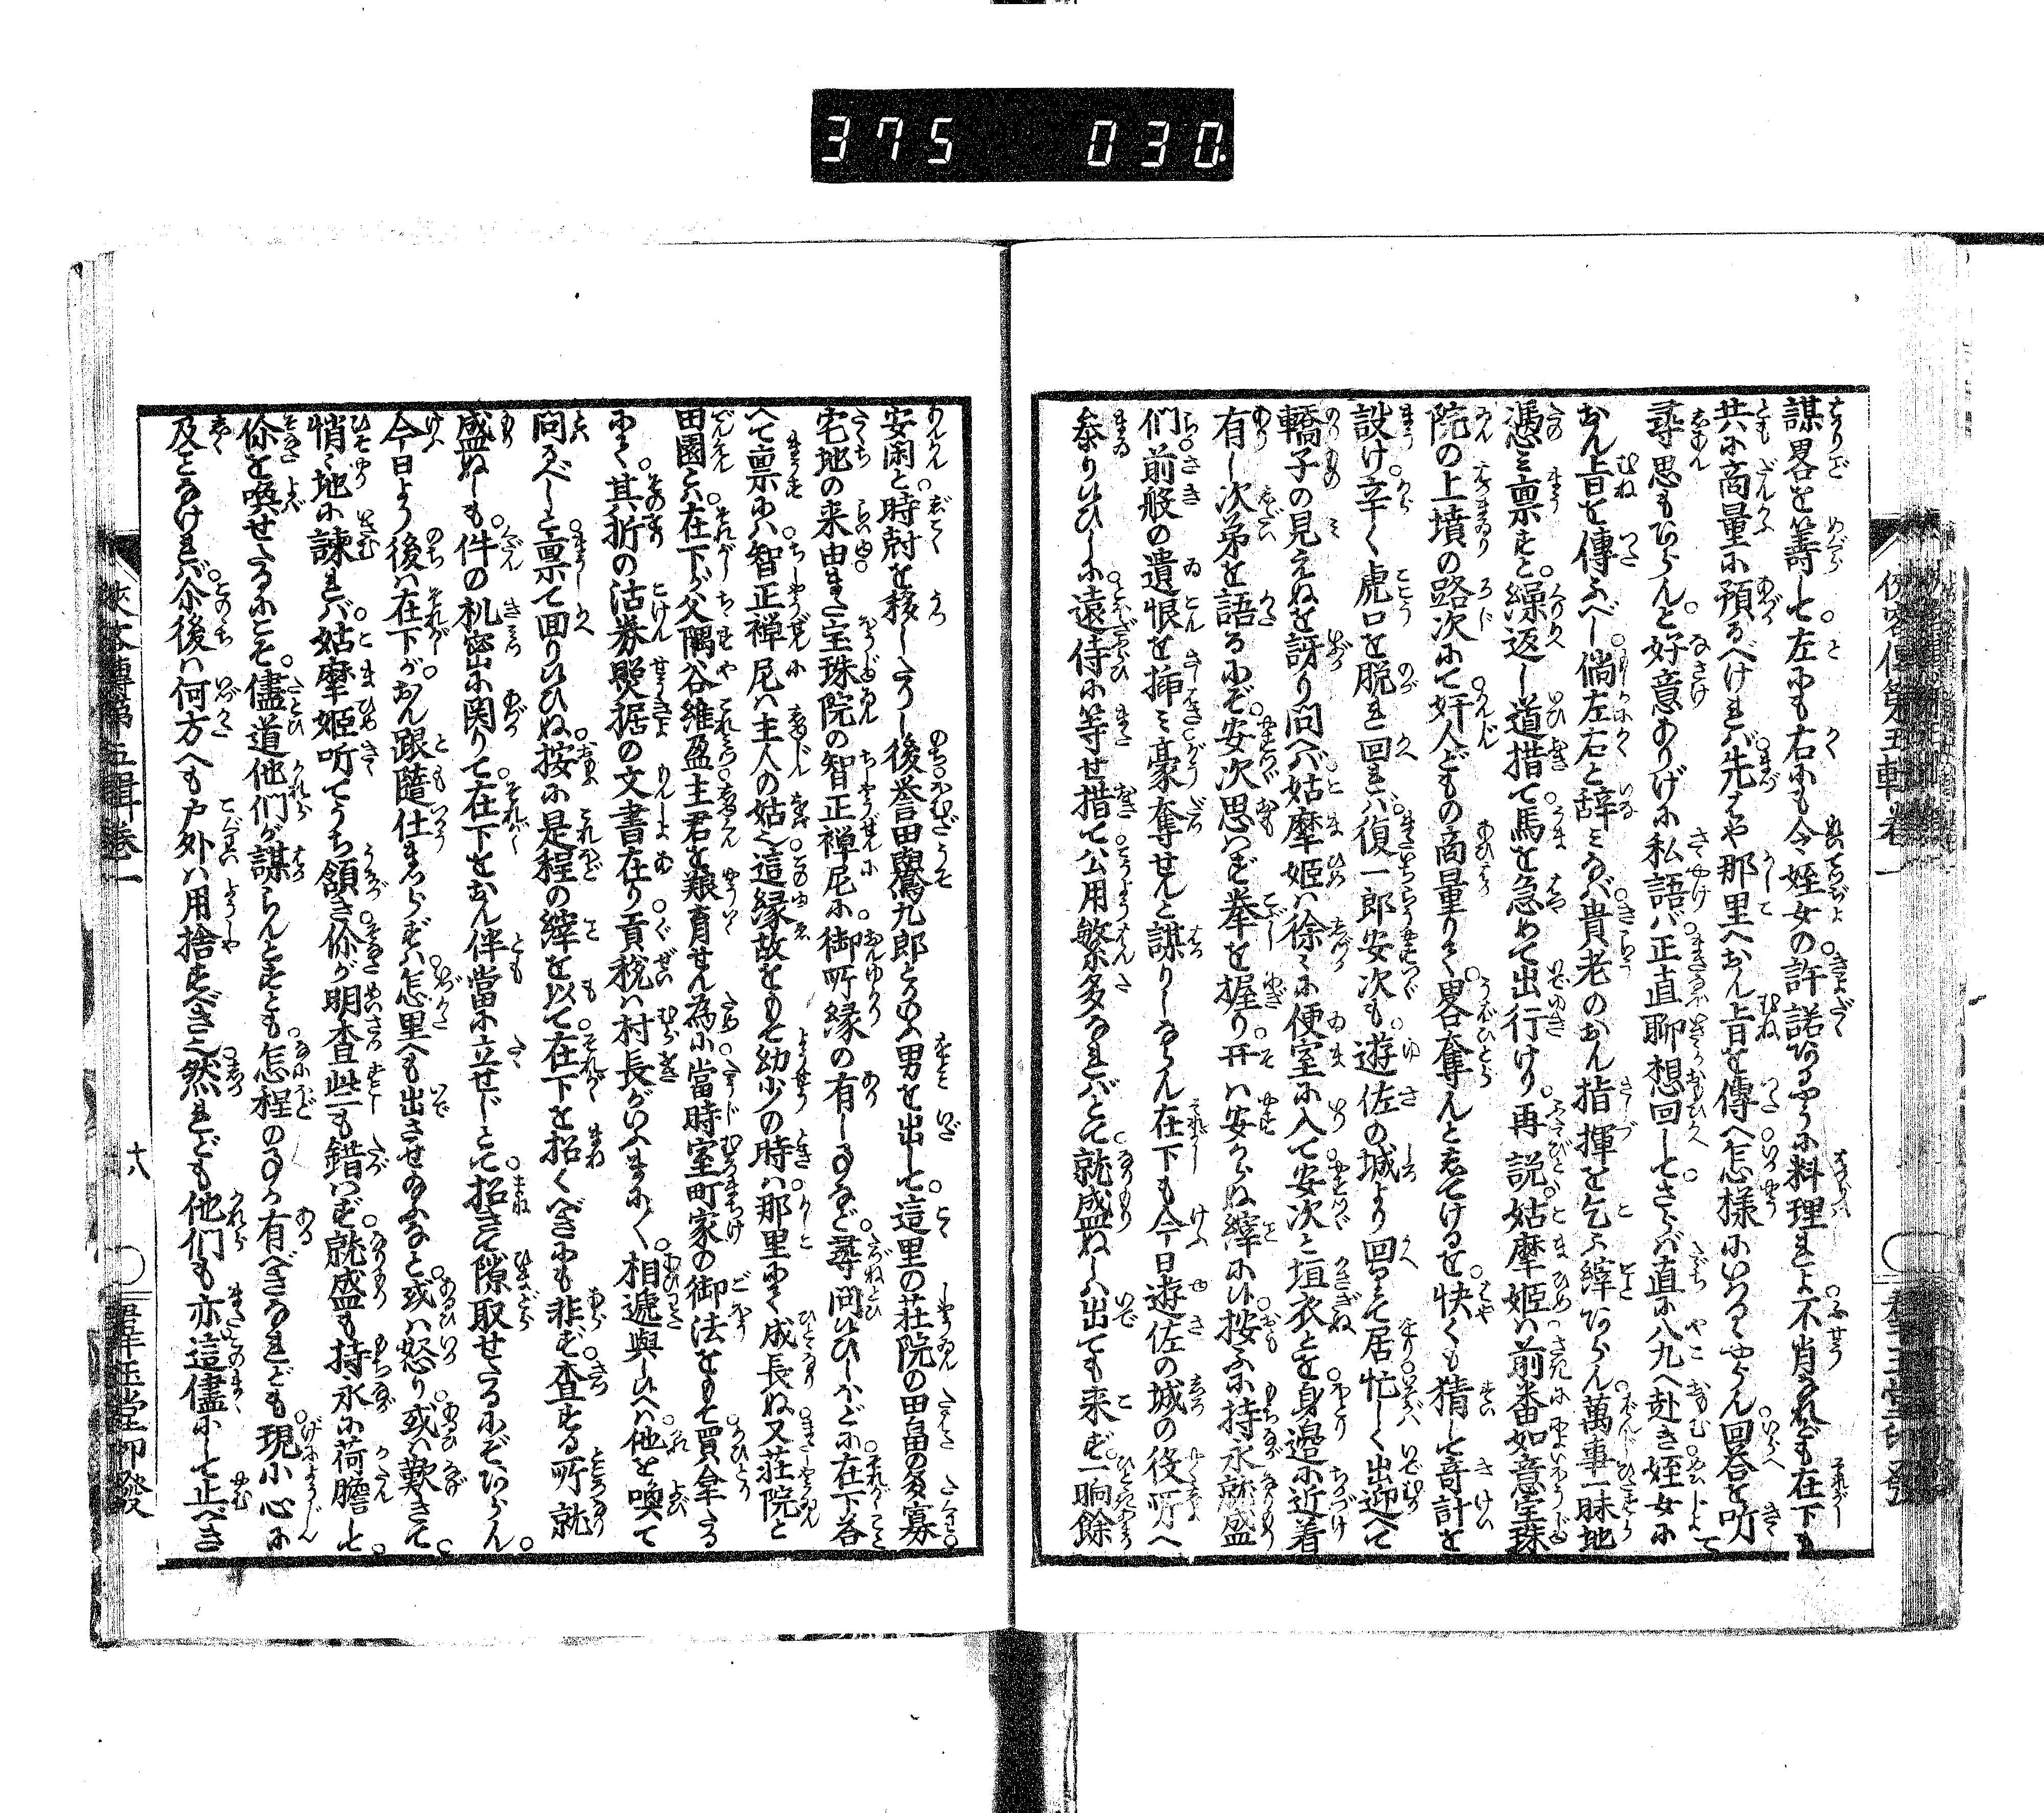 375 030.
謀畧を籌して。左にも右にも令姪女の許諾あるやうに料理れよ。不肖なれども在下も
共に商量に預るべければ。先はや那里へおん旨を傳へ。怎様にいふるやらん。回答を听て
尋思もあらんと。好意ありげに私語ば。正直聊想回して。さらば直に八九へ赴き。姪女に
おん旨を傳ふべし。倘左右と辞みなば。貴老のおん指揮を乞ふ縡あらん。萬事一昧地
憑み稟すと。繰返し道措て。馬を急めて出行けり。再説。姑摩姫は。前番如意宝珠
院の上墳の路次にて。奸人どもの商量りて。畧奪んとしてけるを。快くも猜して。奇計を
設け。辛く虎口を脱れ回れば。復一郎安次も。遊佐の城より回りて居。忙しく出迎へて
轎子の見えぬを訝り問へば。姑摩姫は徐々に便室に入て。安次と垣衣とを身邊に近着
有し次第を語るにぞ。安次思はず拳を握り。开は安からぬ縡に侍。按ふに持永就盛
們。前般の遺恨を挿み。豪奪せんと謀りしならん。在下も今日遊佐の城の役所へ
参りいひしに。遠侍に等せ措て。公用繁多なればとて。就盛ぬしは出ても来ず。一晌餘
安閑と。時尅を移したりし後。誉田與鴬九郎といふ男を出して。這里の荘院の田畠の多寡。
宅地の来由また宝珠院の智正禅尼に。御所縁の有しよしなど。尋問いひしかど。在下答
へて稟すは。智正禅尼は主人の姑也。這縁故をもて幼少の時は。那里にて成長ぬ。又荘院と
田園とは。在下が父隅谷維盈。主君を艱育せん為に。當時室町家の御法をもて。買拿たる
にて。其折の沽券照据の文書在り。貢税は村長がいふまに〳〵。相遞與しいへば。他を喚て
問るべしと。稟して回りいひぬ。按に是程の縡を以て。在下を招くべきにも非ず。査する所就
盛ぬしも。件の机密に関りて。在下をおん伴當に立せじとて。招きて隙取せたるにぞあらん。
今日より後は在下が。おん跟隨仕まらずは。怎里へも出させ給ふなと。或は怒り或は歎きて。
悄々地に諫れば。姑摩姫听てうち頷き。你が明査些も錯はず。就盛も持永に荷膽して。
你を喚せたるにこそ。儘道他們が謀らんとすとも。怎程の事か有べきなれども。現小心に
及となければ。尒後は何方へも。戸外は用捨すべき也。然れども他們も亦。這儘にして止べき
俠客傳第五輯巻一
十八
群玉堂印發